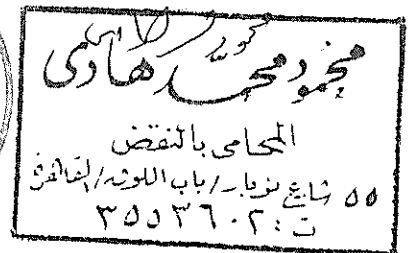 محمود محمد هادى
المحامى بالنقض
٥٥ شارع نوبار / باب اللوق / القاهرة
ت : ٣٥٥٣٦٠٢